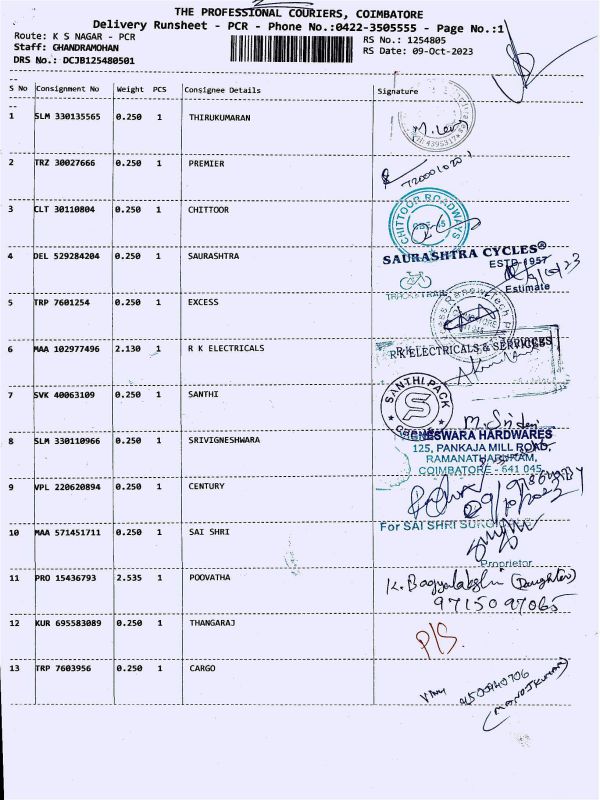 THE PROFESSIONAL COURIERS, COIMBATORE
Delivery Runsheet - PCR - Phone No.:0422-3505555 - Page No.:1
Route: K S NAGAR - PCR
RS No.: 1254805
Staff: GHANDRAMOHAN
RS Date: 09-Oct-2023
DRS No.: DCJB125480501
S No Consignment No Weight PCS Consignee Details Signature
1 SLM 330135565 0.250 1 THIRUKUMARAN
2 TRZ 30027666 0.250 1 PREMIER
3 CLT 30110804 0.250 1 CHITTOOR
CHITTOOR ROADWAYS
4 DEL 529284204 0.250 1 SAURASHTRA
SAURASHTRA CYCLES®
ESTD 1957
Estimate
5 TRP 7601254 0.250 1 EXCESS
6 MAA 102977496 2.130 1 R K ELECTRICALS
R K ELECTRICALS & SERVICES
7 SVK 40063109 0.250 1 SANTHI
SANTHI PACK
8 SLM 330110966 0.250 1 SRIVIGNESHWARA
M. Sridevi
NESWARA HARDWARES
125, PANKAJA MILL ROAD,
RAMANATHAPURAM,
COIMBATORE - 641 045
9 VPL 220620894 0.250 1 CENTURY
10 MAA 571451711 0.250 1 SAI SHRI
For SAI SHRI
Proprietor
11 PRO 15436793 2.535 1 POOVATHA
K. Bagyalakshi (Daughter)
9715097065
12 KUR 695583089 0.250 1 THANGARAJ
P/S.
13 TRP 7603956 0.250 1 CARGO
(MANOJKUMAR)